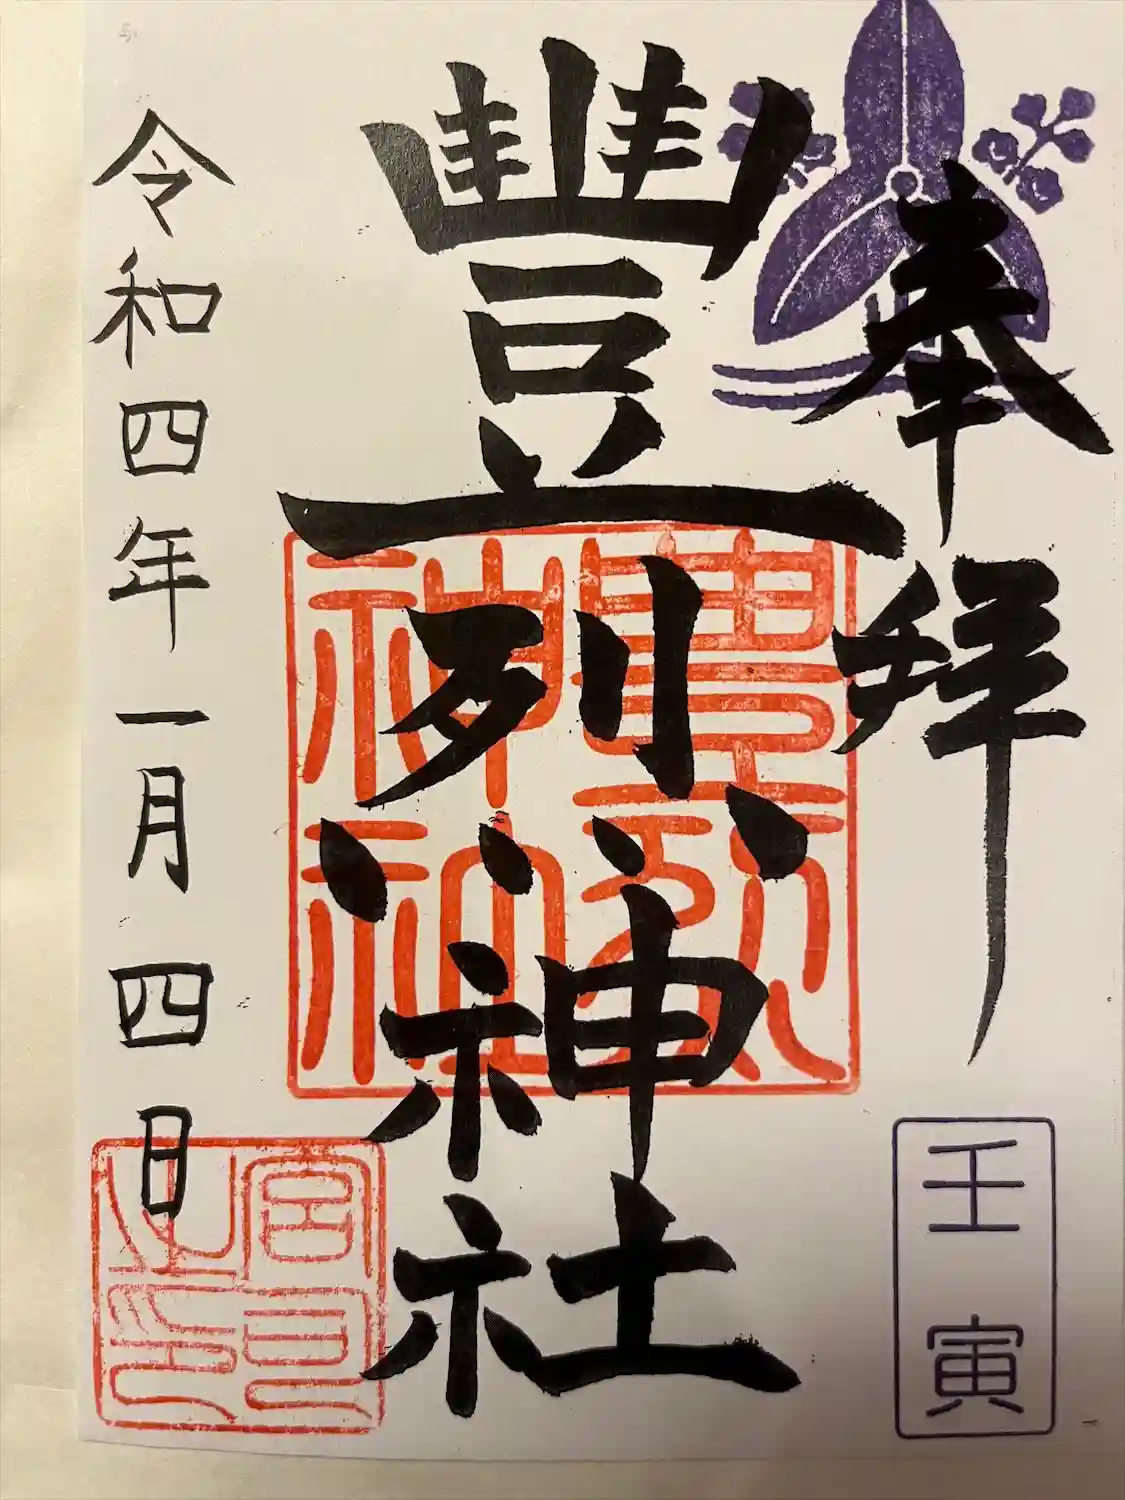 奉拝
壬寅
豐列神社
豊列神社
令和四年一月四日
宮司之印